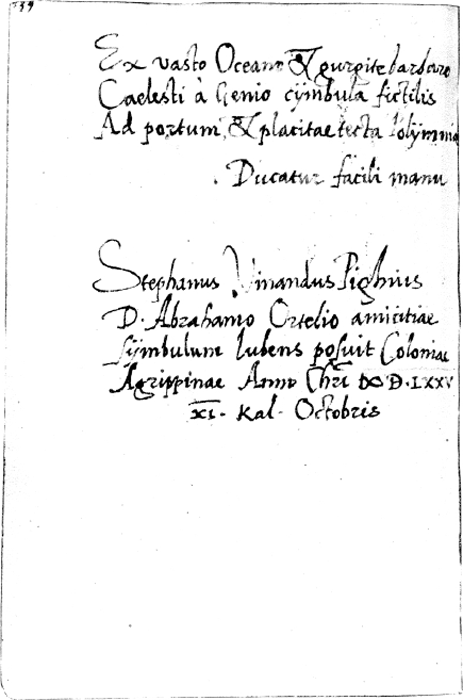 Ex vasto Oceano & gurgite barbaro
Caelesti à Genio cÿmbula fictilis
Ad portum, & placitae tecta Polÿmnia
Ducatur facili manu
Stephanus Vinandus Pighius
D. Abrahamo Ortelio amicitiae
Sÿmbulum lubens posuit Coloniae
Agrippinae Anno Chri̅ ↀ D. LXXV
XI. Kal. Octobris